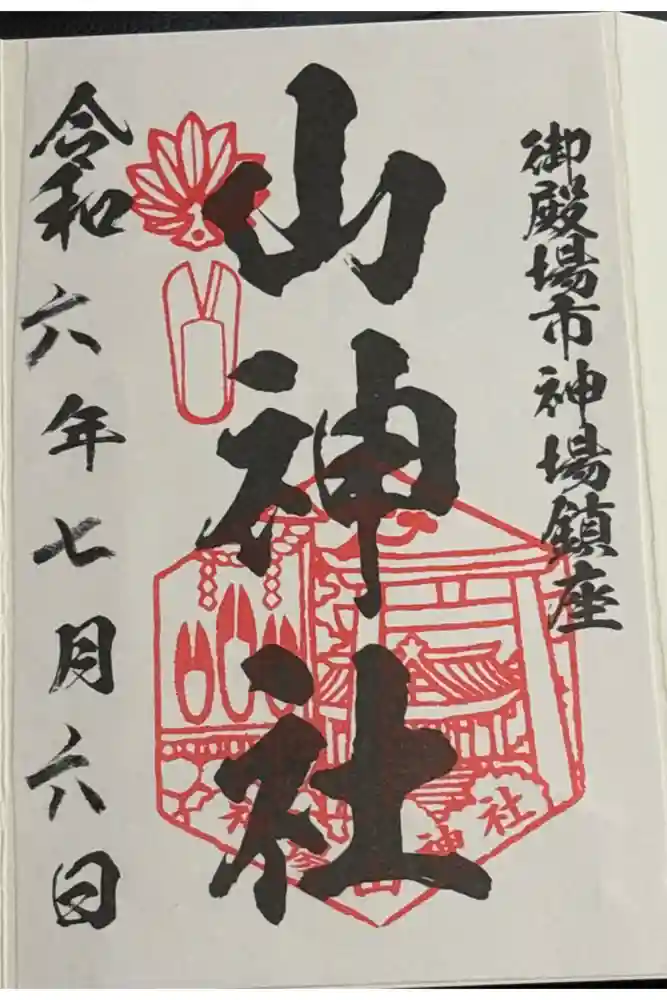 御殿場市神場鎮座
山神社
令和六年七月六日
山神社